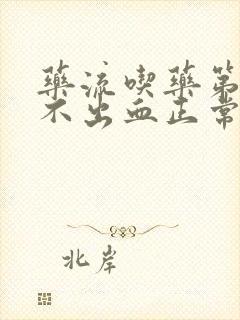 藥流喫藥第
不出血正常
北岸